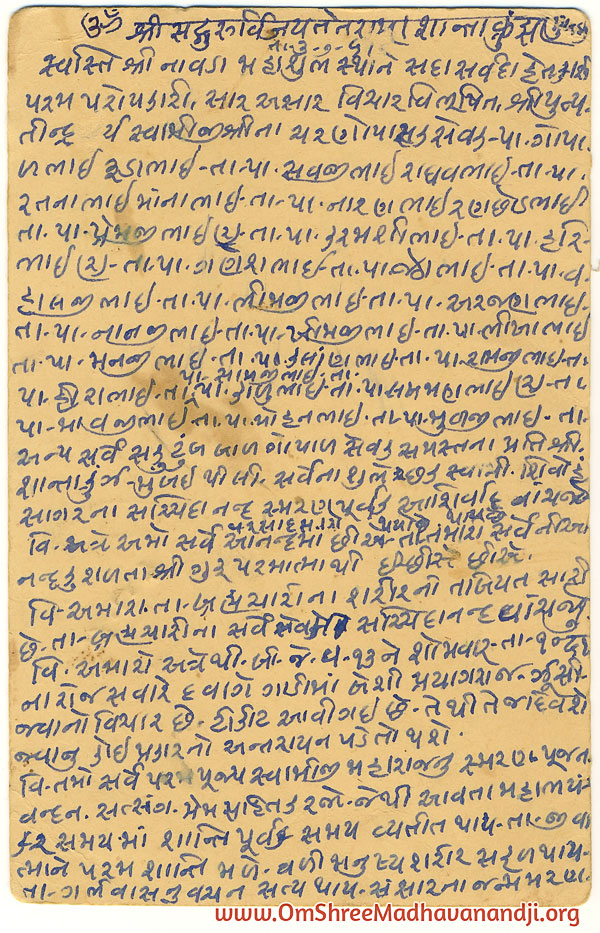 ૐ શ્રી સદ્ગુરુર્વિજયતેતરામ શાન્તાક્રુંઝ
તા-૩-૭-
સ્વસ્તિ શ્રી નાવડા મહાશુભ સ્થાને સદા સર્વદા
પરમ પરોપકારી, સાર અસાર વિચાર વિભુષિત, શ્રી પુન્ય
તીન્દ્ર સ્વામીજીશ્રીના ચરણોપાસક સેવક-પા. ગોપા
ળભાઇ રૂડાભાઇ-તા-પા. સવજીભાઇ રાઘવભાઇ-તા.પા.
રતનાભાઇ માંનાભાઇ-તા-પા. નારણભાઇ રણછોડભાઇ
તા.પા-પ્રેમજીભાઇ (૨)-તા.પા. કરમશીભાઇ-તા.પા. હરિ-
ભાઇ (૨)-તા.પા. ગણેશભાઇ-તા.પા જેઠાભાઇ-તા.પા. વ-
હાલજીભાઇ-તા.પા. ભીમજીભાઇ-તા.પા-અરજણભાઇ-
તા.પા-નાનજીભાઇ-તા.પા-ખીમજીભાઇ-તા.પા. ભીખાભાઇ
તા.પા-મનજીભાઇ-તા.પા. કલ્યાણભાઇ-તા.પા-રામજીભાઇ-તા.
પા. શામજીભાઇ-તા.
પા. હીરાભાઇ-તા.પા. કાળુભાઇ-તા.પા (૨)-તા.
પા-માવજીભાઇ-તા.પા. મોહનભાઇ-તા.પા-મુળજીભાઇ-તા-
અન્ય સર્વે સકુટુંબ બાળ ગોપાળ સેવક સમસ્તના પ્રતિ શ્રી
શાન્તાક્રુંઝ-મુંબઇ થી લી. સર્વેના શુભેચ્છક સ્વામી. શિવોહં
સાગરના સચ્ચિદાનન્દ સ્મરણ પૂર્વક આશિર્વાદ વાંચજો
વિ-અત્રે અમો સર્વે આનન્દમાં છીએ-તા તમારા સર્વેની આ
નન્દ કુશળતા શ્રી ગુરુ પરમાત્માથી ઈચ્છીએ છીએ.
વિ-અમારા-તા-બ્રહ્મચારીના શરીરની તબિયત સારી
છે-તા-બ્રહ્મચારીના સર્વે સેવકોને સચ્ચિદાનન્દ વાંચજો
વિ. અમારો અત્રેથી-બી-જે-વ-૧૩ને શોમવાર-તા-
ના રોજ સવારે ૬ વાગે ગાડીમાં બેશી પ્રયાગરાજ-ઝૂસી
જવાનો વિચાર છે-ટીકીટ આવી ગઇ છે-તેથી તે જ દિવશે
જવાનુ કોઇ પ્રકારનો અન્તરાય ન પડે તો થશે.
વિ-તમો સર્વે પરમ પૂજ્ય સ્વામીજી મહારાજનુ સ્મરણ-પૂજન-
વન્દન. સત્સંગ-પ્રેમ સહિત કરજો-જેથી આવતા મહા ભયં-
કર સમયમાં શાન્તિ પૂર્વક સમય વ્યતીત થાય-તા-જીવા
ત્માને પરમ શાન્તિ મળે-વળી મનુષ્ય શરીર સફળ થાય-
તા-ગર્ભવાસનુ વચન સત્ય થાય-સંસારના જન્મ મરણ
www.OmShreeMadhavanandji.org